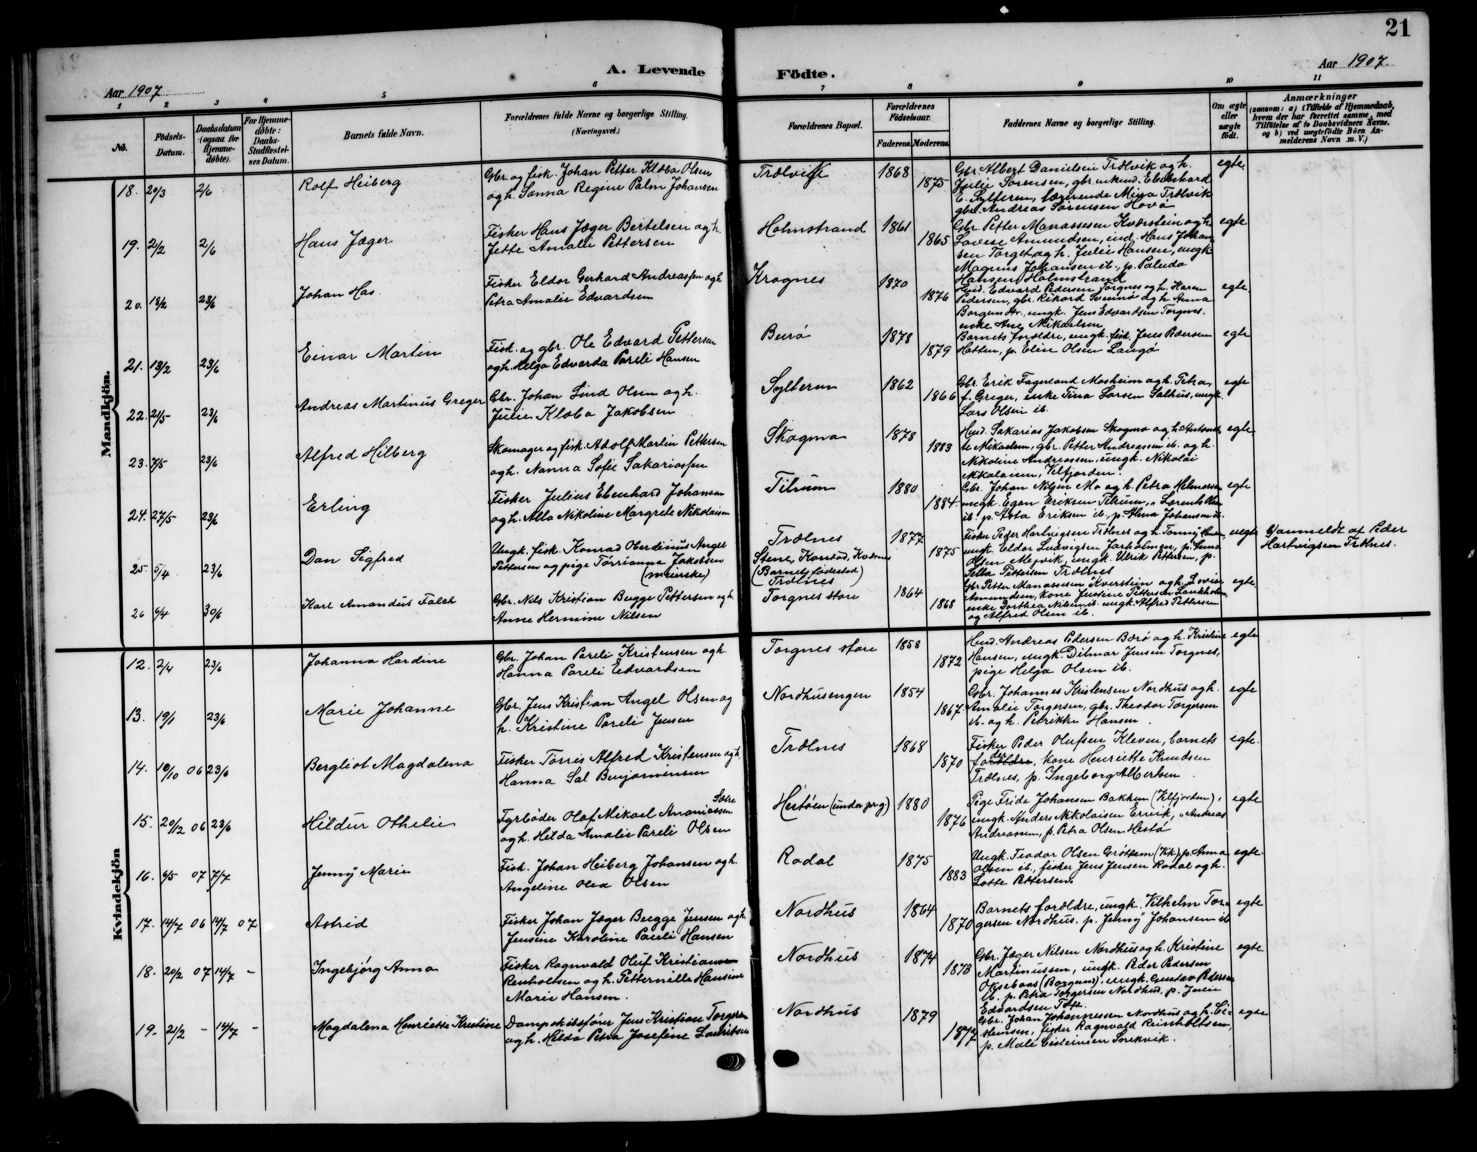 21
A. Levende Födte.
Aar 1907
Aar 1907.
1 2 3 4 5 6 7 8 9 10 11
No.
Födsels-Datum.
Daabsdatum (ogsaa for Hjemmedøbte).
For Hjemmedøbte: Daabs-Stadfæstelses Datum.
Barnets fulde Navn.
Forældrenes fulde Navne og borgerlige Stilling. (Næringsvei.)
Forældrenes Bopæl.
Forældrenes Födselsaar.
Faderens. Moderens.
Faddernes Navne og borgerlige Stilling.
Om ægte eller uægte født.
Anmærkninger
Mandkjön.
18. 20/3 2/6 Rolf Heiberg
Gbr. og fisk. Johan Petter Klæbo Olsen
og h. Sanna Regine Palm Johansen
Trælvik 1868 1875
Gbr. Albert Danielsen Trælvik og h.
Julie Sørensen, gbr. enkem. Ebenhard
gbr. Andreas Sørensen Hovø
egte
19. 2/2 2/6 Hans Jæger
Fisker Hans Jæger Bertelsen og h.
Jette Amalie Pettersen
Holmstrand 1861 1865
Gbr. Petter Manassesen Kværstein og h.
Lovise Amundsen, ind. Hans Johan
sen Torget og h. Julie Hansen, ungk.
Magnus Johansen ib., p. Paluda
Hansen Holmstrand
egte
20. 18/2 23/6 Johan Has
Fisker Eldor Gerhard Andreassen og h
Petra Amalie Edvardsen
Krognes 1870 1876
Hmd. Edvard Pedersen Torgnes og h. Karen
Pedersen, gbr. Rikard Svennø og h. Anna
Borgund ib., ungk. Jens Edvardsen Torgnes.
enke Ane Mikaelsen
egte
21. 13/2 23/6 Einar Martin
Fisk. og gbr. Ole Edvard Pettersen
og h. Helga Edvarda Pareli Hansen
Burø 1878 1879
Barnets forældre, ungk. fisk. Jens Pedersen
Hatten, p. Eline Olsen Langø
egte
22. 2/5 23/6 Andreas Martinus Greger
Gbr. Johan Lind Olsen og h.
Julie Klæbo Jakobsen
Sylteren 1862 1866
Gbr. Erik Fagerland Mosheim og h. Petra
f. Greger, enke Tina Larsen Salhus, ungk.
Lars Olsen ib.
egte
23. 7/5 23/6 Alfred Hilberg
Skomager og fisk. Adolf Martin Pettersen
og h. Nanna Sofie Sakariassen
Skogmo 1878 1883
Hmd. Sakarias Jakobsen Skogmo og h. Antonet
te Mikaelsen, gbr. Petter Andreassen ib. og h.
Nikoline Andreassen, ungk. Nikolai
Nikolaisen, Velfjorden.
egte
24. 27/5 23/6 Erling
Fisker Julius Ebenhard Johansen
og h. Alla Nikoline Margrete Nikolaisen
Tilrum 1880 1884
Gbr. Johan Nilsen Mo og h. Petra Helmersen
ungk. Egan Eriksen Tilrum, " Lorents Olsen
ib. p. Asta Eriksen ib., p. Alma Johansen ib.
egte
25 5/4 23/6 Dan Sigfred
Ungk. fisk. Konrad Oberdinus Angel
Pettersen og pige Torrianne Jakobsen
(meierske)
Trælnes
Stene,
(Barnets fødested)
Trælnes
1877 1875
Fisker Peder Hartvigsen Trælnes og h. Tomine
ungk. Eldor Ludvigsen
Olsen Mejvik, ungk. Ulrik Pettersen, p.
Pettersen Trælnes
uegte
Ganmeldt af Peder
Hartvigsen Trælnes.
26 9/4 30/6 Karl Amandus Falck
Gbr. Nils Kristian Bugge Pettersen og h
Anne Hermine Nilsen
Torgnes store 1864 1868
Gbr. Petter Manassesen Kværstein og h. Lovise
Amundsen, kone Justine Pettersen
enke Dorthea Nilsen ib. ungk. Alfred Pettersen
og Alfred Olsen ib.
egte
Kvindekjön
12. 2/4 23/6 Johanna Hardine
Gbr. Johan Pareli Kristensen og h.
Hanna Pareli Edvardsen
Torgnes store 1858 1872
Hmd. Andreas Pedersen Bærø og h. Kristine
Hansen, ungk. Dilmar Jensen Torgnes,
pige Helga Olsen ib.
egte
13. 19/1 23/6 Marie Johanne
Gbr. Jens Kristian Angel Olsen og
h. Kristine Pareli Jensen
Nordhusengen 1854 1867
Gbr. Johannes Kristensen Nordhus og h.
Amalie Torgersen, gbr. Theodor Torgersen
ib. og h. Petrikke Hansen.
egte
14. 19/10 06 23/6 Bergliot Magdalena
Fisker Torris Alfred Kristensen og h
Hanna Sal Benjaminsen
Trælnes 1868 1870
Fisker Peder Olufsen Kleven, barnets
kone Henriette Knudsen
Trælnes, p. Ingeborg Albertsen
egte.
15. 20/12 06 23/6 Hildur Othelie
Fyrbøder Olaf Mikael Ananiassen
og h. Hilda Amalie Pareli Olsen
Hestøen (under prg) 1880 1876
Pige Frida Johansen Bakken (Velfjorden),
ungk. Anders Nikolaisen Ervik, " Andreas
Andreassen, p. Petra Olsen Hestø
egte
16. 9/5 07 7/7 Jenny Marie
Fisk. Johan Heiberg Johansen og h.
Angeline Olea Olsen
Rodal 1875 1883
Ungk. Teodor Olsen Grøttem (Vik) p. Anna
Olsen ib., fisker Jens Jensen Rodal og h.
Lotte Pettersen.
egte.
17. 14/7 06 14/7 07 Astrid
Fisker Johan Jæger Bugge Jensen og h
Jensine Karoline Pareli Hansen
Nordhus 1864 1870
Barnets forældre, ungk. Vilhelm Tor-
gersen Nordhus. p. Jenny Johansen ib
egte
18. 20/2 07 14/7 - Ingebjørg Anna
Fisker Ragnvald Oluf Kristiansen
Renholtsen og h. Petternille Hansine
Marie Hansen.
Nordhus 1874 1873
Gbr. Jæger Nilsen Nordhus og h. Kristine
Martinussen, ungk. Peder Pedersen
Oksebaas (Borgund), ungk. Gustav Pedersen
ib. p. Petra Torgersen Nordhus, p. Julie
Edvardsen Tofte.
egte
19. 21/2 - 14/7 - Magdalena Henriette Kristine
Dampskibsfører Jens Kristian Torgersen
og h. Hilda Petra Josefine Lauritsen
Nordhus 1879 1877
Gbr. Johan Johannessen Nordhus og h. Ei-
steinsen, fisker Ragnvald Reinholtsen,
p. Male Eisteinsen Sørekvik.
egte